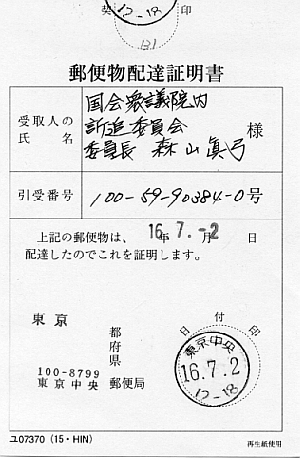 12-18
契
印
131
郵便物配達証明書
受取人の
氏名
国会衆議院内
訴追委員会
委員長 森山眞弓
様
引受番号
100-59-90384-0号
上記の郵便物は、 16年 7.月-2 日
配達したのでこれを証明します。
東京
都
府
県
日
付
印
100-8799
東京中央 郵便局
東京中央
16.7.2
12-18
ユ07370 (15・HIN)
再生紙使用